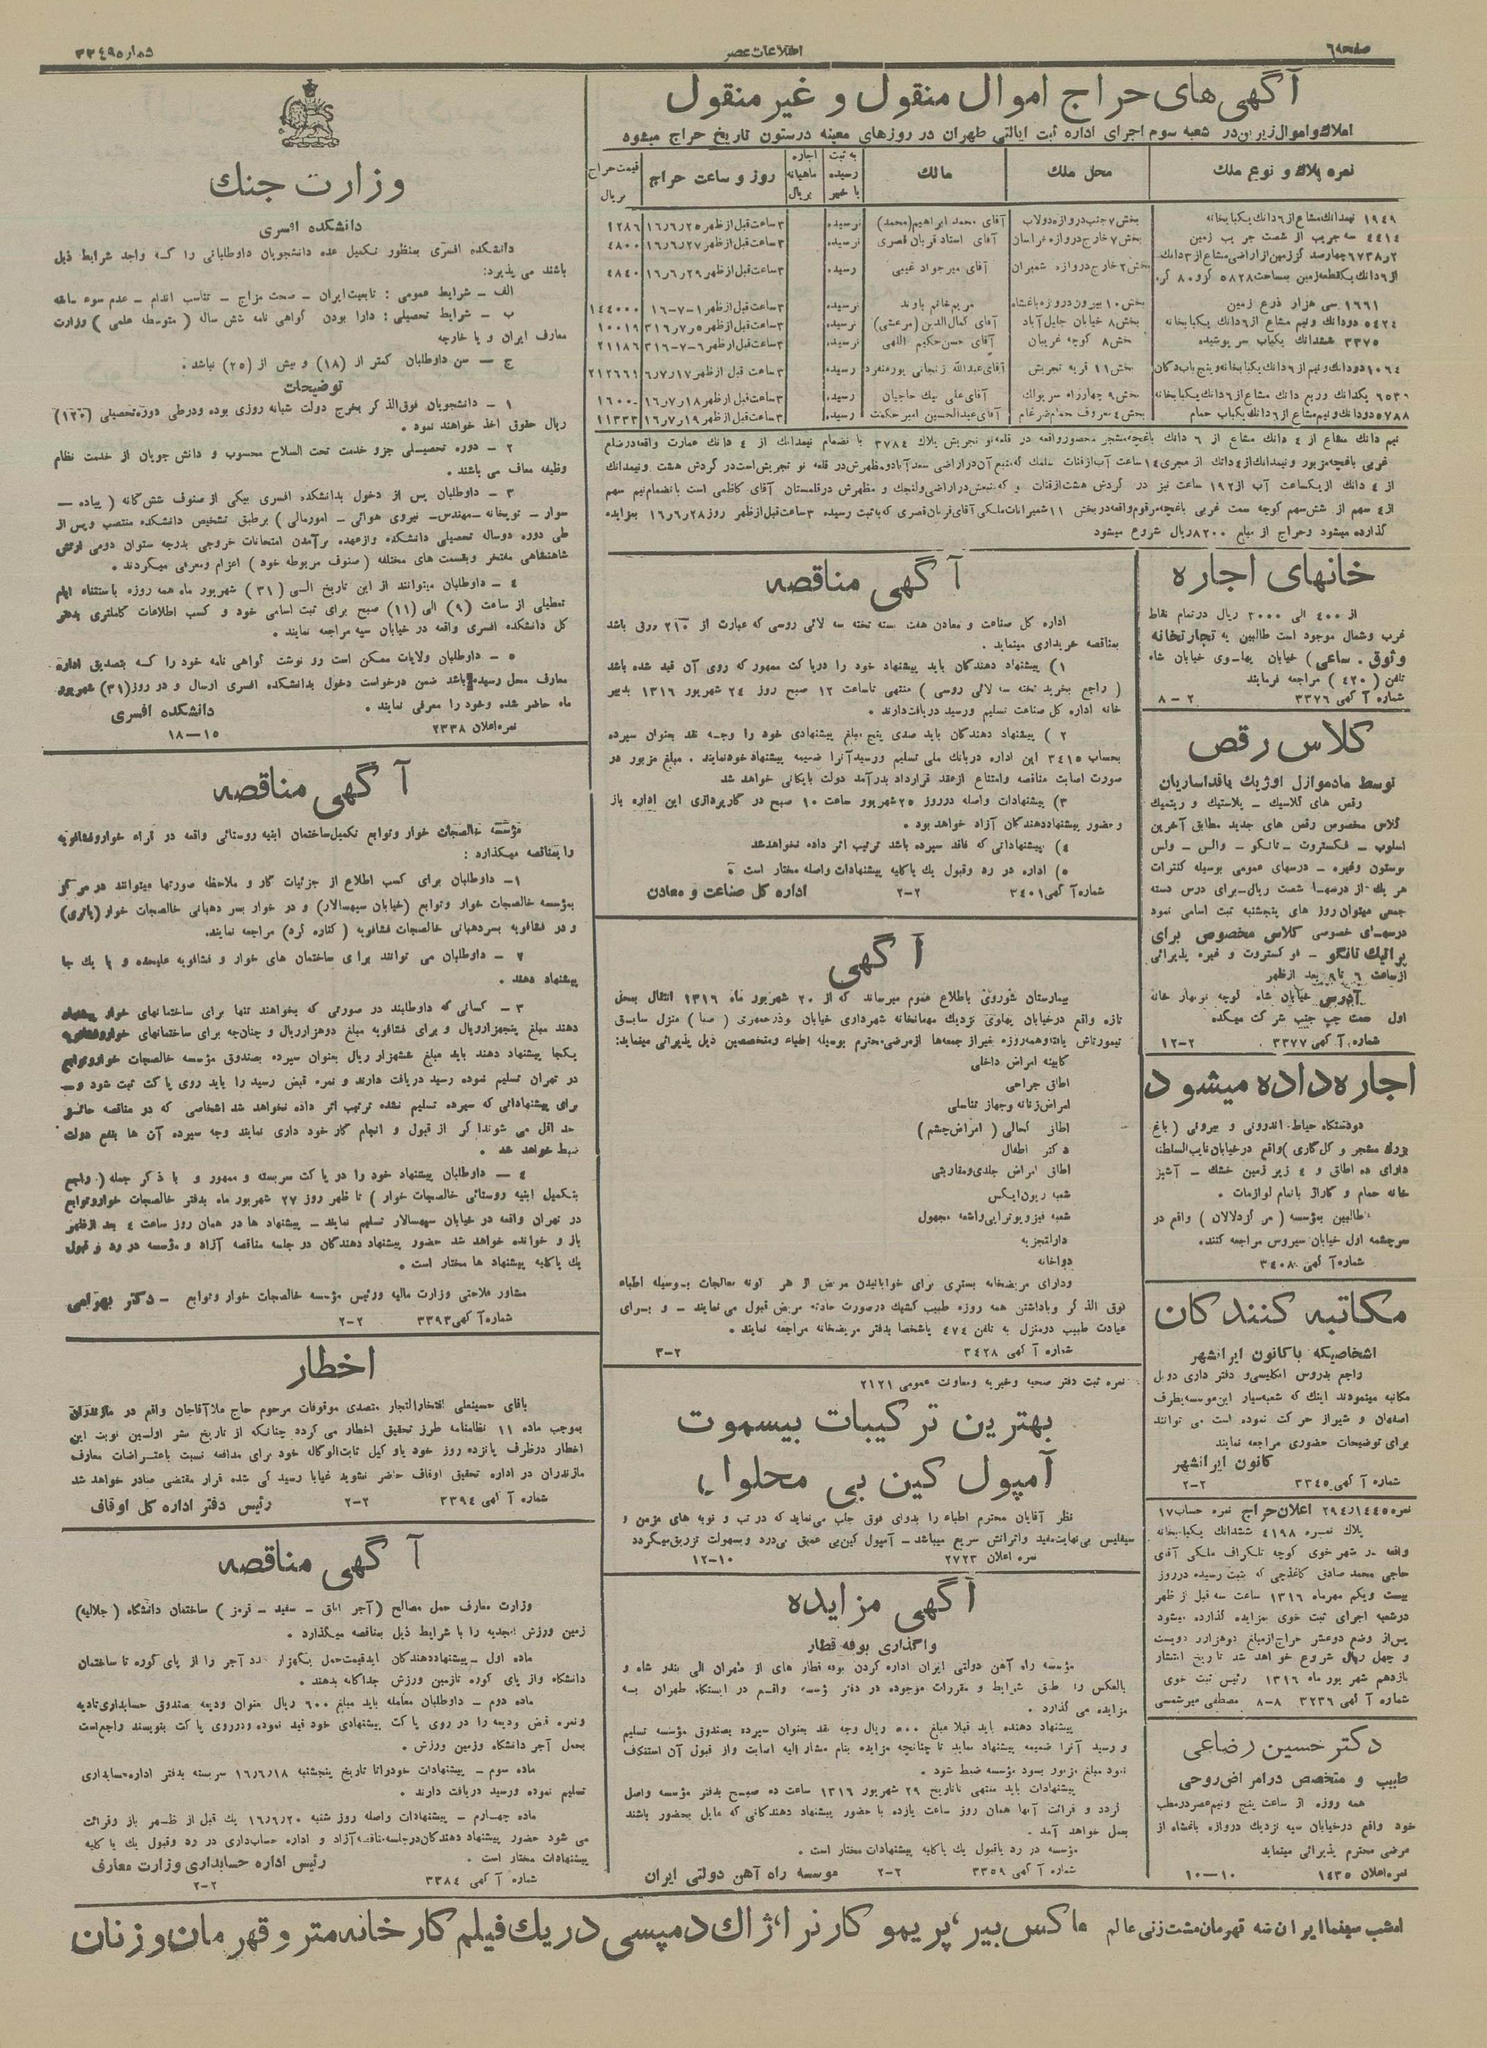 صفحه ٦
اطلاعات عصر
شماره ٣٣٤٩
آگهی های حراج اموال منقول و غیر منقول
املاک واموال زیرین در شعبه سوم اجرای اداره ثبت ایالتی طهران در روزهای معینه درستون تاریخ حراج میشود
نمره پلاک و نوع ملک
محل ملک
مالک
به ثبت رسیده یا خیر
اجاره ماهیانه بریال
روز و ساعت حراج
قیمت حراج بریال
١٩٤٩ نیمدانگ مشاع از ٦ دانگ یکبابخانه بخش ٧ جنب دروازه دولاب آقای محمد ابراهیم (محمد) نرسیده ٣ ساعت قبل از ظهر ١٦/٦/٢٥
٤٤١٤ سه جریب از شصت جریب زمین بخش ٧ خارج دروازه خراسان آقای استاد قربان قصری نرسیده ٣ ساعت قبل از ظهر ١٦/٦/٢٧ ٤٨٠٠
بخش ٢ خارج دروازه شمیران آقای میرجواد غیبی رسیده ٣ ساعت قبل از ظهر ١٦/٦/٢٩ ٤٨٤٠
١٦٦١ سی هزار ذرع زمین بخش ١٠ بیرون دروازه باغشاه مریم خانم باوند نرسیده ٣ ساعت قبل از ظهر ١-٧-١٦ ١٤٤٠٠٠
٥٤٢٤ دودانگ ونیم مشاع از ٦ دانگ یکبابخانه بخش ٨ خیابان جلیل آباد آقای کمال الدین (مرعشی) نرسیده ٣ ساعت قبل از ظهر ٣١٦/٧/٥ ١٠٠١٩
٣٣٧٥ ششدانگ یکباب سرپوشیده بخش ٨ کوچه غریبان آقای حسن حکیم اللهی نرسیده ٣ ساعت قبل از ظهر ٦-٧-٣١٦ ٢١١٨٦
١٠٦٤ دودانگ و نیم از ٦ دانگ یکبابخانه و پنج باب دکان بخش ١١ قریه تجریش آقای عبدالله زنجانی پورمنفرد رسیده ٣ ساعت قبل از ظهر ١٦/٧/١٧ ٢١٢٦٦١
بخش ٩ چهارراه سرپولک آقای علی بیک حاجیان رسیده ٣ ساعت قبل از ظهر ١٦/٧/١٨ ١٦٠٠
٥٧٨٨ دودانگ ونیم مشاع از ٦ دانگ یکباب حمام بخش ٤ معروف حمام ضرغام آقای عبدالحسین امیرحکمت رسیده ٣ ساعت قبل از ظهر ١٦/٧/١٩ ١١٣٣٣
نیم دانگ مشاع از ٤ دانگ مشاع از ٦ دانگ باغچه مشجر محصور واقعه در قلعه نو تجریش پلاک ٣٧٨٤ با نضمام نیمدانگ از ٤ دانگ عمارت واقعه درضلع
گذارده میشود وحراج از مبلغ ٨٢٠٠ ریال شروع میشود
خانهای اجاره
از ٤٠٠ الی ٢٠٠٠ ریال درتمام نقاط
غرب وشمال موجود است طالبین به تجارتخانه
وثوق . ساعی) خیابان پهلوی خیابان شاه
تلفن (٤٢٠) مراجعه فرمایند
شماره آگهی ٣٣٧٦ ٢-٨
کلاس رقص
توسط مادموازل اوژیک پاقداساریان
رقص های کلاسیک - پلاستیک و ریتمیک
کلاس مخصوص رقص های جدید مطابق آخرین
اسلوب - فکستروت - تانگو - والس - ولس
بوستون وغیره - درسهای عمومی بوسیله کنترات
هر یک از درسها شصت ریال - برای درس دسته
جمعی میتوان روز های پنجشنبه ثبت اسامی نمود
درسهای خصوصی کلاس مخصوص برای
پراتیک تانگو - فوکستروت و غیره پذیرائی
از ساعت ٦ تا ٩ بعد ازظهر
آدرس خیابان شاه کوچه نوبهار خانه
اول سمت چپ جنب شرکت میکده
شماره آگهی ٣٣٧٧ ٢-١٢
اجاره داده میشود
دودستگاه حیاط اندرونی و بیرونی (باغ
بزرگ مشجر و گل کاری) واقع درخیابان نایب السلطنه
دارای ده اطاق و ٤ زیر زمین خشک - آشپز
خانه حمام و گاراژ باتمام لوازمات .
طالبین بمؤسسه (مرکز دلالان) واقع در
سرچشمه اول خیابان سیروس مراجعه کنند.
شماره آگهی ٣٤٠٨
مکاتبه کنندگان
اشخاصیکه باکانون ایرانشهر
راجع بدروس انگلیسی و دفتر داری دوبل
مکاتبه مینمودند اینک که شعبه سیار این موسسه بطرف
اصفهان و شیراز حرکت نموده است می توانند
برای توضیحات حضوری مراجعه نمایند
کانون ایرانشهر
شماره آگهی ٣٣٤٥ ٢-٢
نمره ٢٩٤/١٤٤٥ اعلان حراج نمره حساب ١٧
پلاک نمره ٤١٩٨ ششدانگ یکبابخانه
واقعه در شهر خوی کوچه تلگراف ملکی آقای
حاجی محمد صادق کاغذچی که بثبت رسیده درروز
بیست ویکم مهرماه ١٣١٦ ساعت سه قبل از ظهر
درشعبه اجرای ثبت خوی بمزایده گذارده میشود
پس از وضع دوعشر حراج ازمبلغ دوهزار و دویست
و چهل ریال شروع خواهد شد تاریخ انتشار
یازدهم شهریور ماه ١٣١٦ رئیس ثبت خوی
شماره آگهی ٣٢٣٦ ٨-٨ مصطفی میرشمسی
دکتر حسین رضاعی
طبیب و متخصص درامراض روحی
همه روزه از ساعت پنج ونیم عصر درمطب
خود واقع درخیابان سپه نزدیک دروازه باغشاه از
مرضی محترم پذیرائی مینماید
نمره اعلان ١٤٣٥ ١٠-١٠
آگهی مناقصه
اداره کل صناعت و معادن هفت بسته تخته سه لائی روسی که عبارت از ٢١٥ ورق باشد
بمناقصه خریداری مینماید.
١) پیشنهاد دهندگان باید پیشنهاد خود را درپاکت ممهور که روی آن قید شده باشد
(راجع بخرید تخته سه لائی روسی) منتهی تاساعت ١٢ صبح روز ٢٤ شهریور ١٣١٦ بدبیر
خانه اداره کل صناعت تسلیم ورسید دریافت دارند.
٢) پیشنهاد دهندگان باید صدی پنج مبلغ پیشنهادی خود را وجه نقد بعنوان سپرده
بحساب ٣٤١٥ این اداره دربانک ملی تسلیم ورسید آنرا ضمیمه پیشنهاد خودنمایند . مبلغ مزبور در
صورت اصابت مناقصه وامتناع ازعقد قرارداد بدرآمد دولت بایگانی خواهد شد
٣) پیشنهادات واصله درروز ٢٥ شهریور ساعت ١٠ صبح در کارپردازی این اداره باز
و حضور پیشنهاددهندگان آزاد خواهد بود .
٤) پیشنهاداتی که فاقد سپرده باشد ترتیب اثر داده نخواهدشد
٥) اداره در رد وقبول یک یاکلیه پیشنهادات واصله مختار است .
شماره آگهی ٣٤٠١ ٢-٢ اداره کل صناعت و معادن
آگهی
بیمارستان شوروی باطلاع عموم میرساند که از ٢٠ شهریور ماه ١٣١٦ انتقال بمحل
تازه واقع درخیابان پهلوی نزدیک مهمانخانه شهرداری خیابان بوذرجمهری (صبا) منزل سابق
تیمورتاش یافته وهمه روزه بغیراز جمعه ها ازمرضی محترم بوسیله اطباء ومتخصصین ذیل پذیرائی مینماید:
کابینه امراض داخلی
اطاق جراحی
امراض زنانه وجهاز تناسلی
اطاق کحالی (امراض چشم)
دکتر اطفال
اطاق امراض جلدی ومقاربتی
شعبه ریون ایکس
شعبه فیزیوتراپی واشعه مجهول
دارالتجزیه
دواخانه
ودارای مریضخانه بستری برای خوابانیدن مریض از هر گونه معالجات بوسیله اطباء
فوق الذکر وباداشتن همه روزه طبیب کشیک درصورت حادثه مریض قبول می نمایند - و برای
عیادت طبیب درمنزل به تلفن ٤٧٤ یاشخصا بدفتر مریضخانه مراجعه نمایند .
شماره آگهی ٣٤٢٨ ٢-٣
نمره ثبت دفتر صحیه وخیریه ومعاونت عمومی ٢١٢١
بهترین ترکیبات بیسموت
آمپول کین بی محلول
نظر آقایان محترم اطباء را بدوای فوق جلب می نماید که در تب و نوبه های مزمن و
سیفلیس بی نهایت مفید واثراتش سریع میباشد - آمپول کین بی عمیق بی درد وبسهولت تزریق میگردد
نمره اعلان ٢٧٢٣ ١٠-١٢
آگهی مزایده
واگذاری بوفه قطار
مؤسسه راه آهن دولتی ایران اداره کردن بوفه قطار های از طهران الی بندر شاه و
بالعکس را طبق شرایط و مقررات موجوده در دفتر مؤسسه واقع در ایستگاه طهران به
مزایده می گذارد .
پیشنهاد دهنده باید قبلا مبلغ ٥٠٠ ریال وجه نقد بعنوان سپرده بصندوق مؤسسه تسلیم
و رسید آنرا ضمیمه پیشنهاد نماید تا چنانچه مزایده بنام مشار الیه اصابت واز قبول آن استنکاف
نمود مبلغ مزبور بسود مؤسسه ضبط شود .
پیشنهادات باید منتهی تاتاریخ ٢٩ شهریور ١٣١٦ ساعت ده صبح بدفتر مؤسسه واصل
گردد و قرائت آنها همان روز ساعت یازده با حضور پیشنهاد دهندگانی که مایل بحضور باشند
بعمل خواهد آمد .
مؤسسه در رد یاقبول یک یاکلیه پیشنهادات مختار است .
شماره آگهی ٣٣٥٩ ٢-٢ موسسه راه آهن دولتی ایران
وزارت جنگ
دانشکده افسری
دانشکده افسری بمنظور تکمیل عده دانشجویان داوطلبانی را که واجد شرایط ذیل
باشند می پذیرد:
الف - شرایط عمومی : تابعیت ایران - صحت مزاج - تناسب اندام - عدم سوء سابقه
ب - شرایط تحصیلی : دارا بودن گواهی نامه شش ساله (متوسطه علمی) وزارت
معارف ایران و یا خارجه
ج - سن داوطلبان کمتر از (١٨) و بیش از (٢٥) نباشد .
توضیحات
١ - دانشجویان فوق الذکر بخرج دولت شبانه روزی بوده ودرطی دوره تحصیلی (١٢٠)
ریال حقوق اخذ خواهند نمود .
٢ - دوره تحصیلی جزو خدمت تحت السلاح محسوب و دانش جویان از خدمت نظام
وظیفه معاف می باشند .
٣ - داوطلبان پس از دخول بدانشکده افسری بیکی از صنوف شش گانه (پیاده -
سوار - توپخانه - مهندس - نیروی هوائی - امورمالی) برطبق تشخیص دانشکده منتصب وپس از
طی دوره دوساله تحصیلی دانشکده وازعهده برآمدن امتحانات خروجی بدرجه ستوان دومی ارتش
شاهنشاهی مفتخر وبقسمت های مختلفه (صنوف مربوطه خود) اعزام ومعرفی میگردند .
٤ - داوطلبان میتوانند از این تاریخ الی (٣١) شهریور ماه همه روزه باستثناء ایام
تعطیلی از ساعت (٩) الی (١١) صبح برای ثبت اسامی خود و کسب اطلاعات کاملتری بدفتر
کل دانشکده افسری واقعه در خیابان سپه مراجعه نمایند .
٥ - داوطلبان ولایات ممکن است رو نوشت گواهی نامه خود را که بتصدیق اداره
معارف محل رسیده باشد ضمن درخواست دخول بدانشکده افسری ارسال و در روز (٣١) شهریور
ماه حاضر شده وخود را معرفی نمایند .
دانشکده افسری
نمره اعلان ٢٣٣٨ ١٥-١٨
آگهی مناقصه
مؤسسه خالصجات خوار وتوابع تکمیل ساختمان ابنیه روستائی واقعه در قراء خوار وفشافویه
را بمناقصه میگذارد :
١- داوطلبان برای کسب اطلاع از جزئیات کار و ملاحظه صورتها میتوانند در مرکز
بمؤسسه خالصجات خوار وتوابع (خیابان سپهسالار) و در خوار بسر دهبانی خالصجات خوار
و در فشافویه بسردهبانی خالصجات فشافویه (کناره گرد) مراجعه نمایند.
٢ - داوطلبان می توانند برای ساختمان های خوار و فشافویه علیحده و یا یک جا
پیشنهاد دهند .
٣ - کسانی که داوطلبند در صورتی که بخواهند تنها برای ساختمانهای خوار پیشنهاد
دهند مبلغ پنجهزارریال و برای فشافویه مبلغ دوهزارریال و چنان چه برای ساختمانهای خوار وفشافویه
یکجا پیشنهاد دهند باید مبلغ ششهزار ریال بعنوان سپرده بصندوق مؤسسه خالصجات خوار وتوابع
در تهران تسلیم نموده رسید دریافت دارند و نمره قبض رسید را باید روی پاکت ثبت شود و
برای پیشنهاداتی که سپرده تسلیم نشده ترتیب اثر داده نخواهد شد اشخاصی که در مناقصه حائز
حد اقل می شوند اگر از قبول و انجام کار خود داری نمایند وجه سپرده آن ها بنفع دولت
ضبط خواهد شد .
٤ - داوطلبان پیشنهاد خود را در پاکت سربسته و ممهور و با ذکر جمله (راجع
بتکمیل ابنیه روستائی خالصجات خوار) تا ظهر روز ٢٧ شهریور ماه بدفتر خالصجات خوار وتوابع
در تهران واقعه در خیابان سپهسالار تسلیم نمایند - پیشنهاد ها در همان روز ساعت ٤ بعد ازظهر
باز و خوانده خواهد شد حضور پیشنهاد دهندگان در جلسه مناقصه آزاد و مؤسسه در رد و قبول
یک یاکلیه پیشنهاد ها مختار است .
مشاور فلاحتی وزارت مالیه ورئیس مؤسسه خالصجات خوار وتوابع - دکتر بهرامی
شماره آگهی ٣٣٩٣ ٢-٢
اخطار
باقای حسینعلی افتخارالتجار متصدی موقوفات مرحوم حاج ملاآقاجان واقع در مازندران
بموجب ماده ١١ نظامنامه طرز تحقیق اخطار می گردد چنانکه از تاریخ نشر اولین نوبت این
اخطار درظرف پانزده روز خود یاوکیل ثابت الوکاله خود برای مدافعه نسبت باعتراضات معارف
مازندران در اداره تحقیق اوقاف حاضر نشوید غیابا رسیدگی شده قرار مقتضی صادر خواهد شد
شماره آگهی ٣٣٩٤ ٢-٢ رئیس دفتر اداره کل اوقاف
آگهی مناقصه
وزارت معارف حمل مصالح (آجر ابلق - سفید - قرمز) ساختمان دانشگاه (جلالیه)
زمین ورزش امجدیه را با شرایط ذیل بمناقصه میگذارد .
ماده اول - پیشنهاددهندگان باید قیمت حمل یکهزار عدد آجر را از پای کوره تا ساختمان
دانشگاه واز پای کوره تازمین ورزش جداگانه بدهند .
ماده دوم - داوطلبان معامله باید مبلغ ٦٠٠ ریال بعنوان ودیعه بصندوق حسابداری تادیه
ونمره قبض ودیعه را در روی پاکت پیشنهادی خود قید نموده و درروی پاکت بنویسند راجع است
بحمل آجر دانشگاه وزمین ورزش .
ماده سوم - پیشنهادات خودراتا تاریخ پنجشنبه ١٦/٦/١٨ سربسته بدفتر اداره حسابداری
تسلیم نموده ورسید دریافت دارند .
ماده چهارم - پیشنهادات واصله روز شنبه ١٦/٦/٢٠ یک قبل از ظهر باز وقرائت
می شود حضور پیشنهاد دهندگان درجلسه مناقصه آزاد و اداره حسابداری در رد وقبول یک یا کلیه
پیشنهادات مختار است . رئیس اداره حسابداری وزارت معارف
شماره آگهی ٣٣٨٤ ٢-٢
امشب سینما ایران سه قهرمان مشت زنی عالم ماکس بیر، پریمو کارنرا، ژاک دمپسی در یک فیلم کارخانه مترو قهرمان و زنان